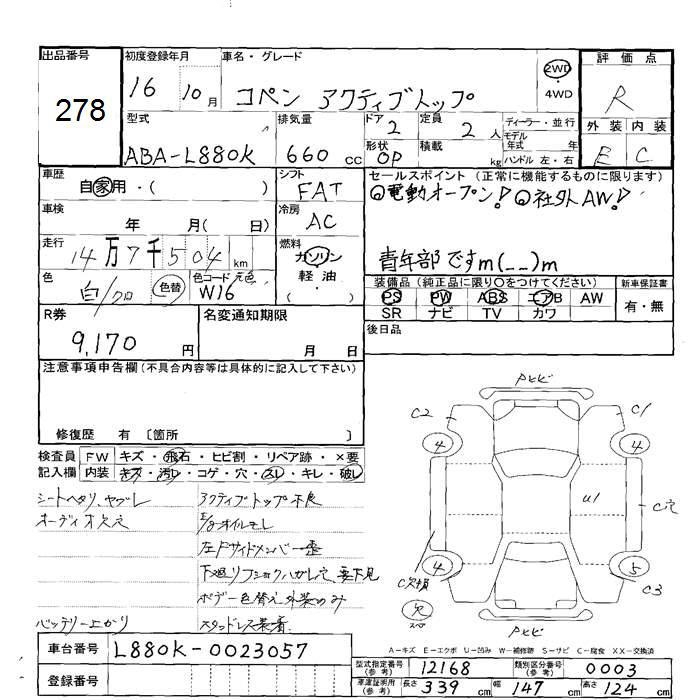 出品番号 278
初度登録年月 16 10月
車名・グレード コペン アクティブトップ
2WD
・4WD
評価点 R
外装 内装
E C
型式 ABA-L880K
排気量 660 cc
ドア 2
定員 2 人
形状 OP
積載 kg
ディーラー・並行
モデル年式 年
ハンドル 左・右
車歴 自家用・( )
シフト FAT
セールスポイント (正常に機能するものに限ります)
◎電動オープン! ◎社外AW!
青年部ですm(__)m
車検 年 月( 日)
冷房 AC
走行 14万7千504 km
燃料 ガソリン
軽油・
( )
色 白/クロ 色替
色コード 元色 W16
装備品 (純正品に限り○をつけてください)
PS PW ABS エアB AW
SR ナビ TV カワ
新車保証書
有・無
R券 9,170 円
名変通知期限 月 日
後日品
注意事項申告欄(不具合内容等は具体的に記入して下さい)
修復歴 有 〔箇所 〕
検査員記入欄
FW キズ・飛石・ヒビ割・リペア跡・×要
内装 キズ・汚レ・コゲ・穴・スレ・キレ・破レ
シートヘタリ、ヤブレ
オーディオ欠
バッテリー上がり
アクティブトップ不良
E/gオイルモレ
左Fサイドメンバー歪
下廻りフショクハガレ穴、要下見
ボデー色替え外装のみ
スタッドレス装着
Pヒビ
C2 C1
4 4
U1 C穴
4 5
C欠損 C3
欠
スペア
Pヒビ
A-キズ E-エクボ U-凹み W-補修跡 S-サビ C-腐食 XX-交換済
車台番号 L880K-0023057
登録番号
型式指定番号(参考) 12168
類別区分番号(参考) 0003
車庫証明用(参考) 長さ 339 cm 幅 147 cm 高さ 124 cm